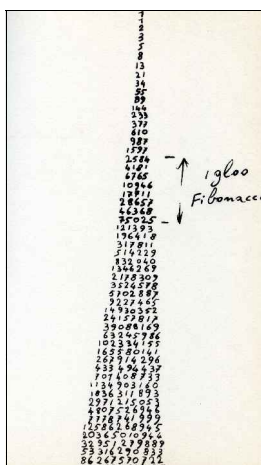 1
1
2
3
5
8
13
21
34
55
89
144
233
377
610
987
1597
2584
4181
6765
10946
17711
28657
46368
75025
121393
196418
317811
514229
832040
1346269
2178309
3524578
5702887
9227465
14930352
24157817
39088169
63245986
102334155
165580141
267914296
433494437
701408733
1134903160
1836311893
2971215053
4807526946
7778741999
12586268945
20365010944
32951279889
53316290833
86267570722
igloo
Fibonacci